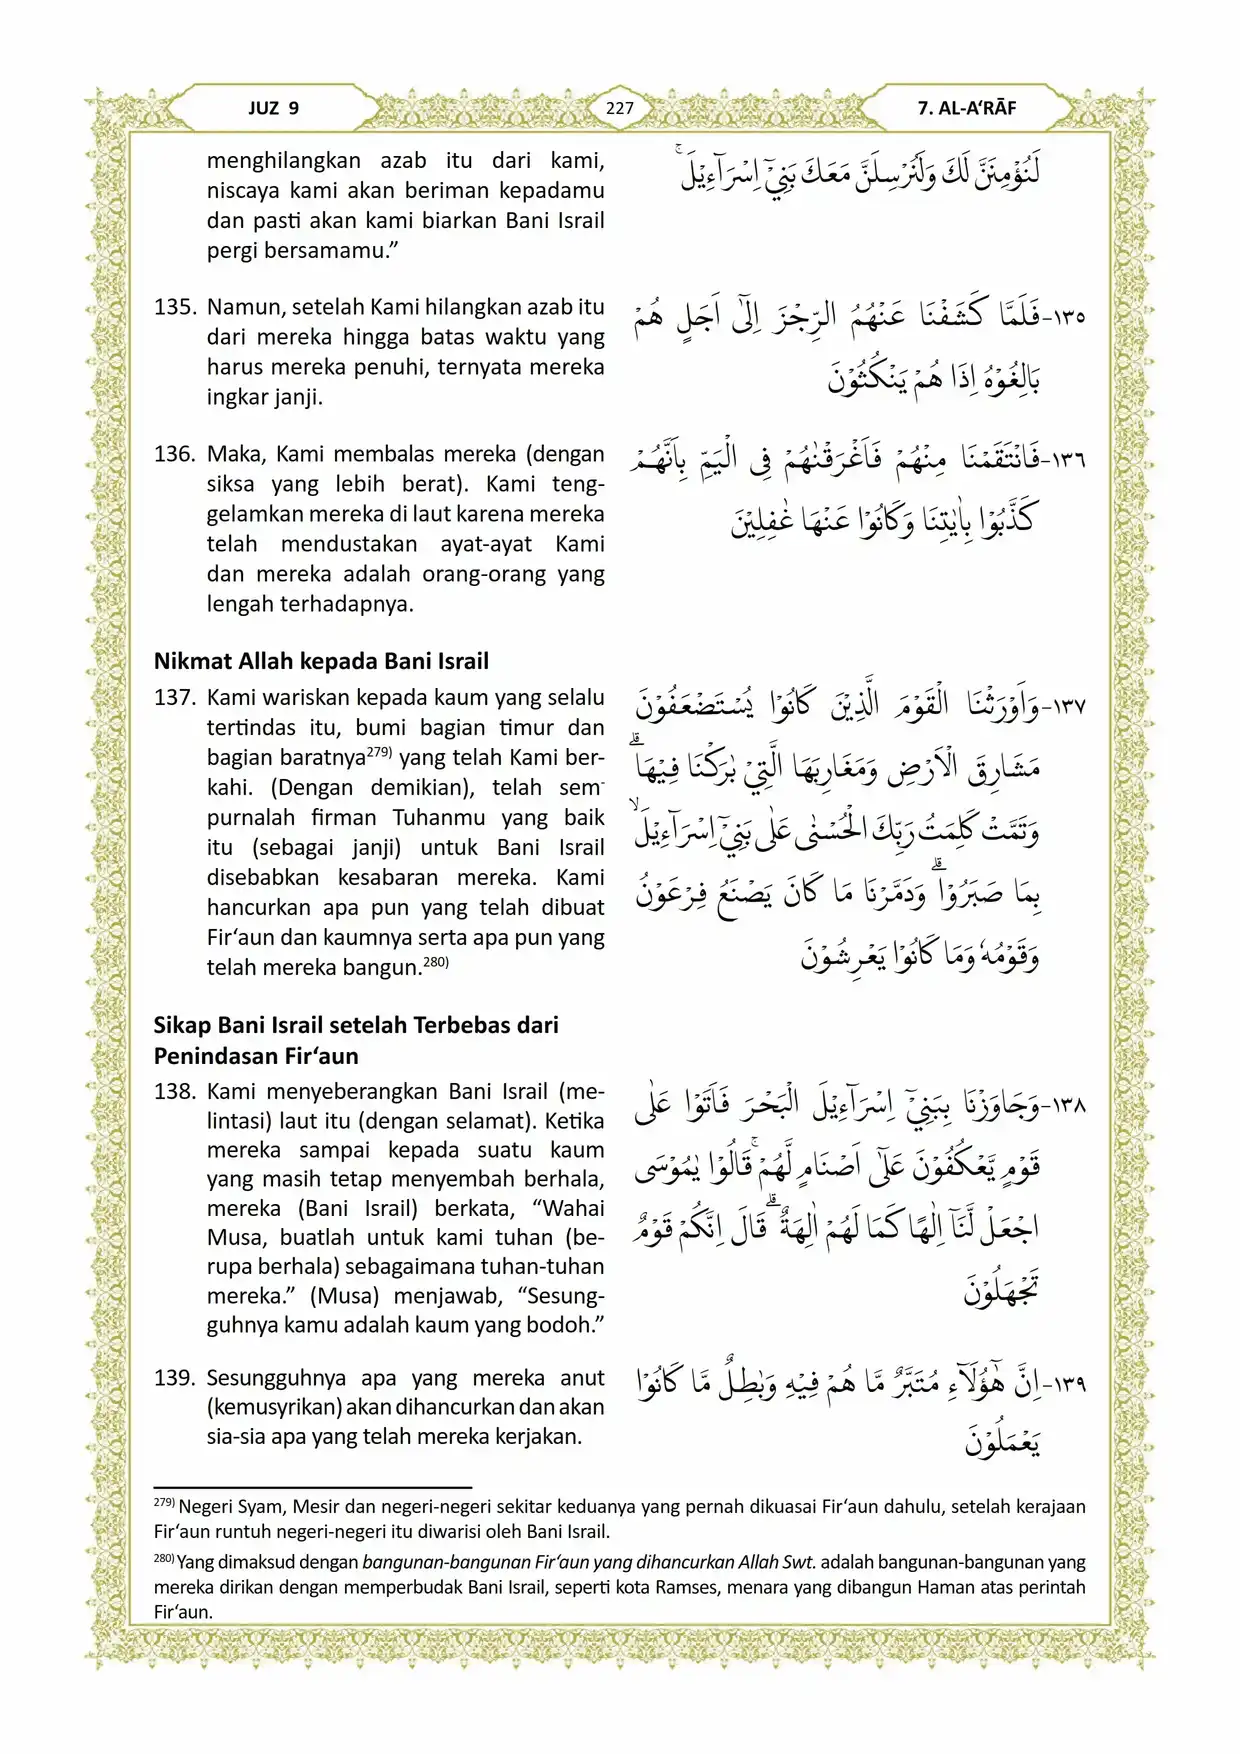 JUZ 9
227
7. AL-A‘RĀF
menghilangkan azab itu dari kami,
niscaya kami akan beriman kepadamu
dan pasti akan kami biarkan Bani Israil
pergi bersamamu.”
لَنُؤْمِنَنَّ لَكَ وَلَنُرْسِلَنَّ مَعَكَ بَنِيْٓ اِسْرَاۤءِيْلَۚ
135. Namun, setelah Kami hilangkan azab itu
dari mereka hingga batas waktu yang
harus mereka penuhi, ternyata mereka
ingkar janji.
١٣٥- فَلَمَّا كَشَفْنَا عَنْهُمُ الرِّجْزَ اِلٰٓى اَجَلٍ هُمْ
بَالِغُوْهُ اِذَا هُمْ يَنْكُثُوْنَ
136. Maka, Kami membalas mereka (dengan
siksa yang lebih berat). Kami teng-
gelamkan mereka di laut karena mereka
telah mendustakan ayat-ayat Kami
dan mereka adalah orang-orang yang
lengah terhadapnya.
١٣٦- فَانْتَقَمْنَا مِنْهُمْ فَاَغْرَقْنٰهُمْ فِى الْيَمِّ بِاَنَّهُمْ
كَذَّبُوْا بِاٰيٰتِنَا وَكَانُوْا عَنْهَا غٰفِلِيْنَ
Nikmat Allah kepada Bani Israil
137. Kami wariskan kepada kaum yang selalu
tertindas itu, bumi bagian timur dan
bagian baratnya²⁷⁹⁾ yang telah Kami ber-
kahi. (Dengan demikian), telah sem-
purnalah firman Tuhanmu yang baik
itu (sebagai janji) untuk Bani Israil
disebabkan kesabaran mereka. Kami
hancurkan apa pun yang telah dibuat
Fir‘aun dan kaumnya serta apa pun yang
telah mereka bangun.²⁸⁰⁾
١٣٧- وَاَوْرَثْنَا الْقَوْمَ الَّذِيْنَ كَانُوْا يُسْتَضْعَفُوْنَ
مَشَارِقَ الْاَرْضِ وَمَغَارِبَهَا الَّتِيْ بٰرَكْنَا فِيْهَاۗ
وَتَمَّتْ كَلِمَتُ رَبِّكَ الْحُسْنٰى عَلٰى بَنِيْٓ اِسْرَاۤءِيْلَۙ
بِمَا صَبَرُوْاۗ وَدَمَّرْنَا مَا كَانَ يَصْنَعُ فِرْعَوْنُ
وَقَوْمُهٗ وَمَا كَانُوْا يَعْرِشُوْنَ
Sikap Bani Israil setelah Terbebas dari
Penindasan Fir‘aun
138. Kami menyeberangkan Bani Israil (me-
lintasi) laut itu (dengan selamat). Ketika
mereka sampai kepada suatu kaum
yang masih tetap menyembah berhala,
mereka (Bani Israil) berkata, “Wahai
Musa, buatlah untuk kami tuhan (be-
rupa berhala) sebagaimana tuhan-tuhan
mereka.” (Musa) menjawab, “Sesung-
guhnya kamu adalah kaum yang bodoh.”
١٣٨- وَجَاوَزْنَا بِبَنِيْٓ اِسْرَاۤءِيْلَ الْبَحْرَ فَاَتَوْا عَلٰى
قَوْمٍ يَّعْكُفُوْنَ عَلٰٓى اَصْنَامٍ لَّهُمْۚ قَالُوْا يٰمُوْسَى
اجْعَلْ لَّنَآ اِلٰهًا كَمَا لَهُمْ اٰلِهَةٌۗ قَالَ اِنَّكُمْ قَوْمٌ
تَجْهَلُوْنَ
139. Sesungguhnya apa yang mereka anut
(kemusyrikan) akan dihancurkan dan akan
sia-sia apa yang telah mereka kerjakan.
١٣٩- اِنَّ هٰٓؤُلَاۤءِ مُتَبَّرٌ مَّا هُمْ فِيْهِ وَبٰطِلٌ مَّا كَانُوْا
يَعْمَلُوْنَ
²⁷⁹⁾ Negeri Syam, Mesir dan negeri-negeri sekitar keduanya yang pernah dikuasai Fir‘aun dahulu, setelah kerajaan
Fir‘aun runtuh negeri-negeri itu diwarisi oleh Bani Israil.
²⁸⁰⁾ Yang dimaksud dengan bangunan-bangunan Fir‘aun yang dihancurkan Allah Swt. adalah bangunan-bangunan yang
mereka dirikan dengan memperbudak Bani Israil, seperti kota Ramses, menara yang dibangun Haman atas perintah
Fir‘aun.